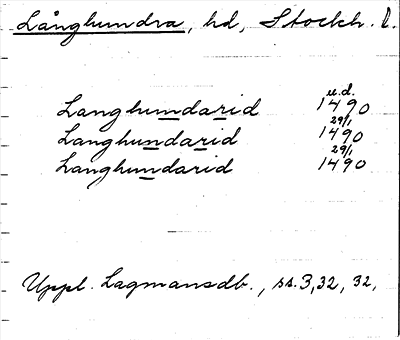 Långhundra, hd, Stockh. l.
Langhundarid u.d. 1490
Langhundarid 29/1 1490
Langhundarid 29/1 1490
Uppl. Lagmansdb., ss. 3, 32, 32,